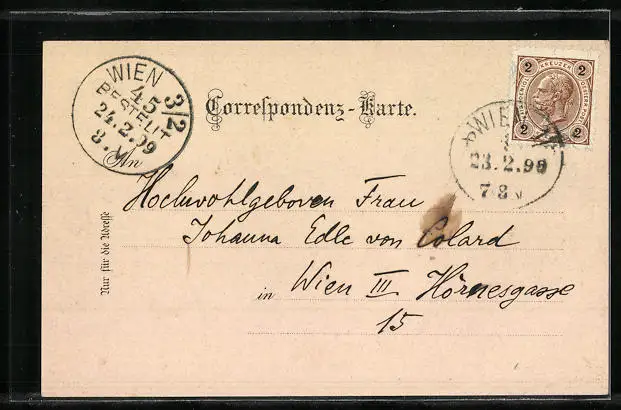 WIEN 3/2
45
BESTELLT
24.2.99
8.V
Correspondenz-Karte.
2 KREUZER 2
2 2
WIEN
23.2.99
7 3 N
An
Hochwohlgeboren Frau
Johanna Edle von Colard
in Wien III Hörnesgasse
15
Nur für die Adresse